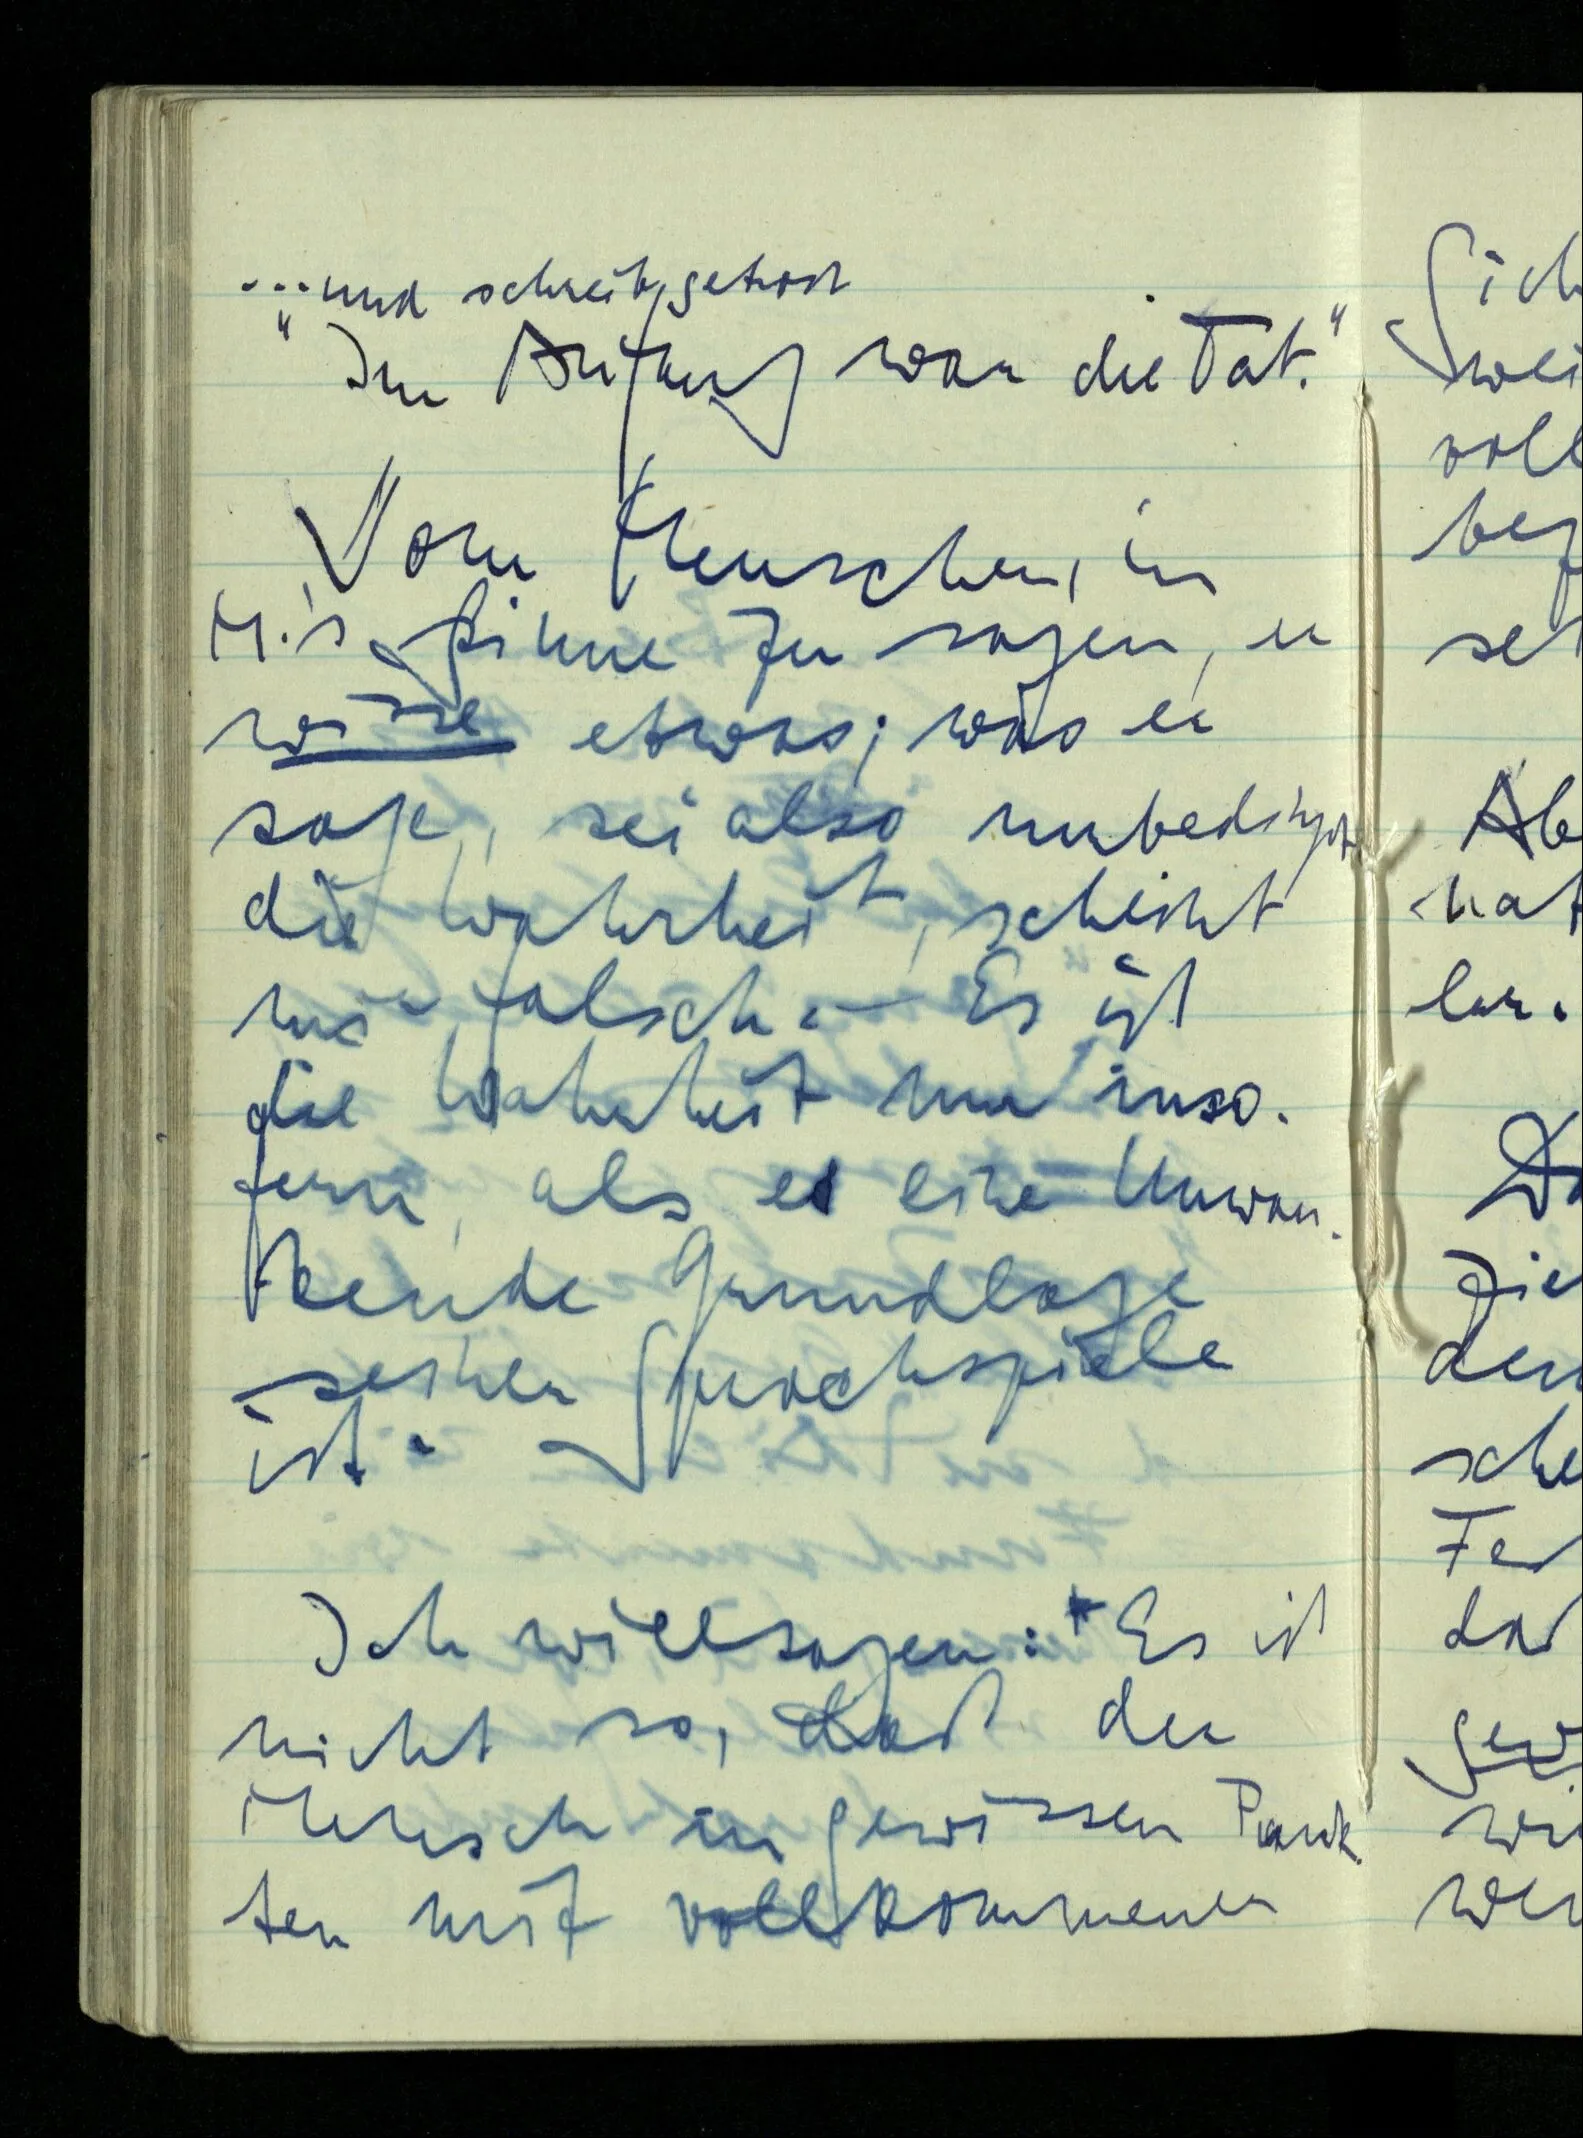 ... und schreib getrost
"Im Anfang war die Tat."
Vom Menschen, in
M.'s Sinne zu sagen, er
wisse etwas; was er
sage, sei also unbedingt
die Wahrheit, scheint
mir falsch. – Es ist
die Wahrheit nur inso-
fern, als es eine Unwan-
kende Grundlage
seiner Sprachspiele
ist.
Ich will sagen: * Es ist
nicht so, daß der
Mensch in gewissen Punk-
ten mit vollkommener
Sich
wei
voll
bez
set
Ab
nat
lar.
Da
zie
den
sche
Fe
daß
gew
wi
wer